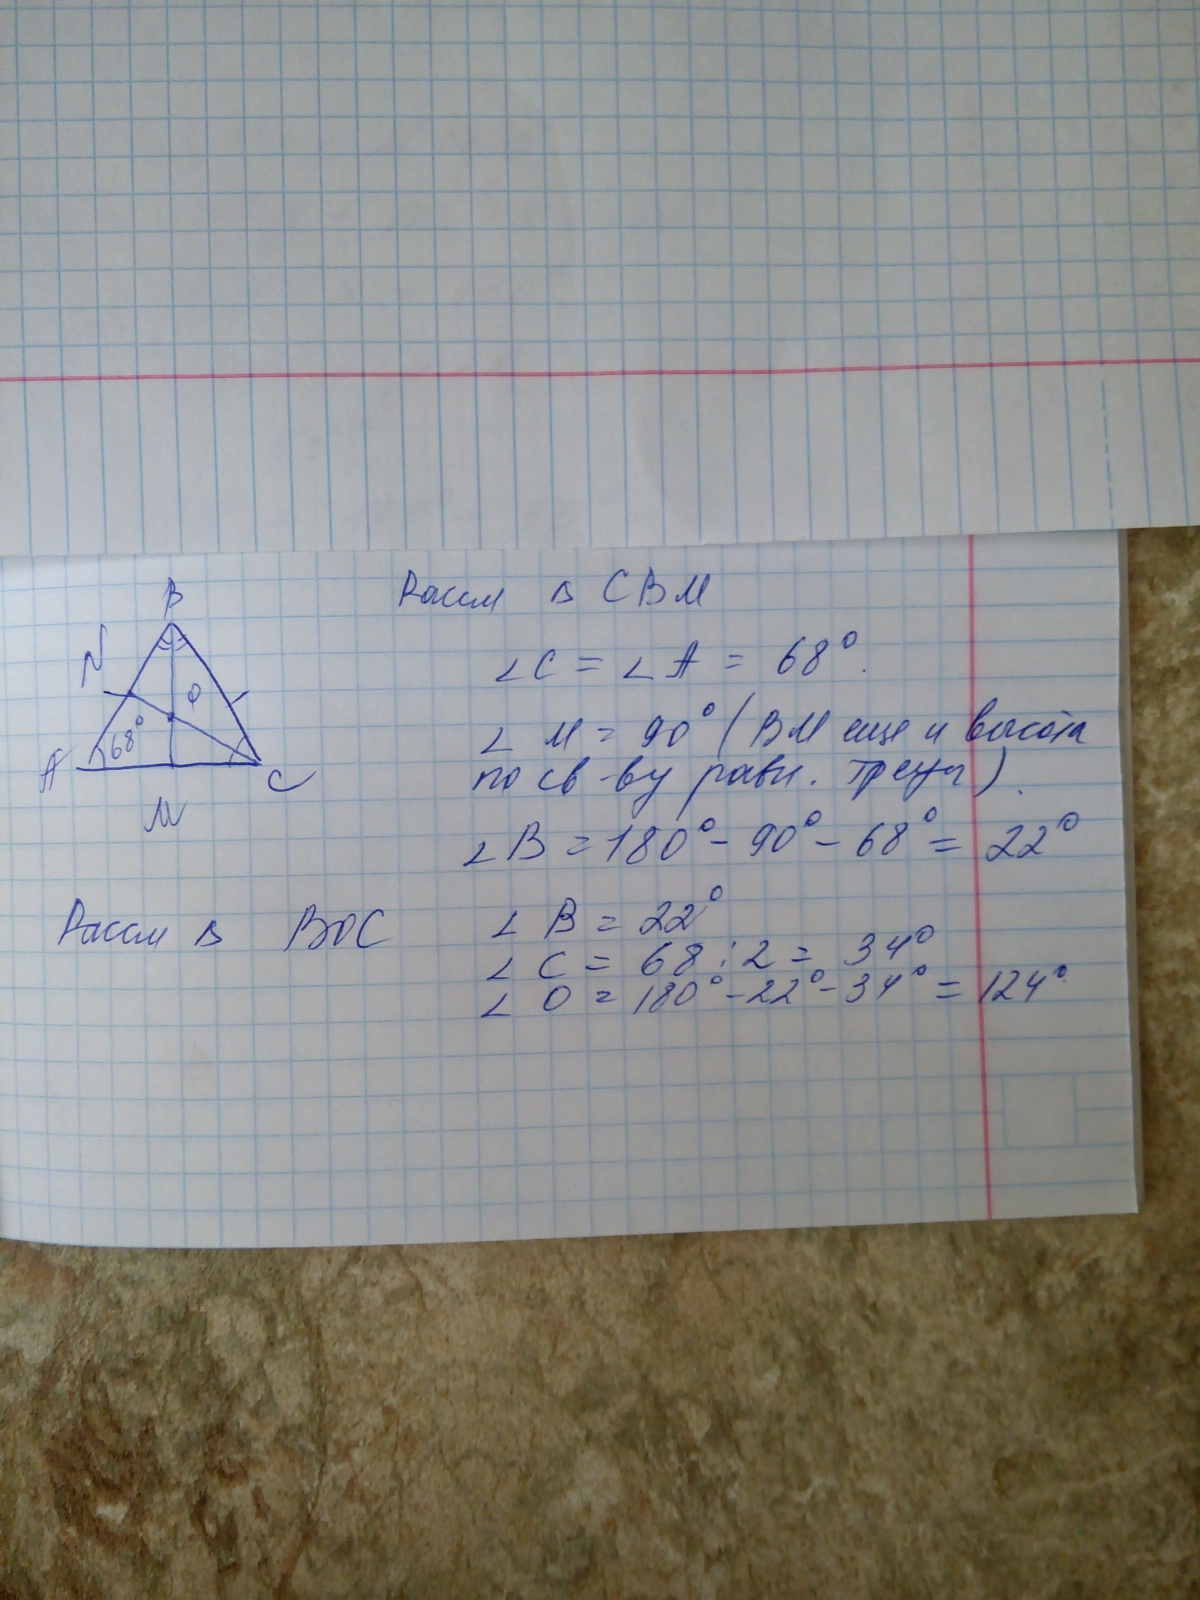 B
N
O
68°
A
C
M
Рассм △ CBM
∠C = ∠A = 68°.
∠ M = 90° (BM еще и высота
по св-ву равн. треуг).
∠B = 180° - 90° - 68° = 22°
Рассм △ BOC
∠ B = 22°
∠ C = 68 : 2 = 34°
∠ O = 180° - 22° - 34° = 124°.